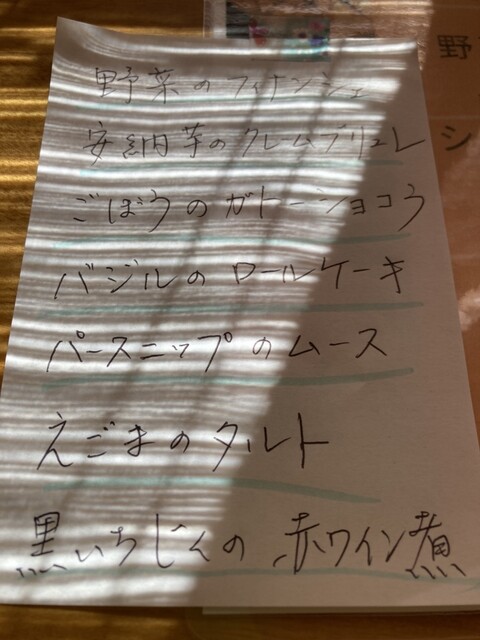 野菜のフィナンシェ
安納芋のクレームブリュレ
ごぼうのガトーショコラ
バジルのロールケーキ
パースニップのムース
えごまのタルト
黒いちじくの赤ワイン煮
野
シ